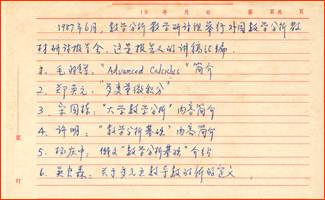 19 年 月 日 第 页 共 页
1987年6月,数学分析教学研讨班举行外国数学分析教
材研讨报告会,这是报告人的讲稿汇编
1. 毛羽辉:"Advanced Calculus"简介
2. 郑英元:"多变量微积分"
3. 宋国栋:"大学数学分析"内容简介
4. 许明:"数学分析基础"内容简介
5. 庆中:俄文"数学分析基础"介绍
6. 吴良森:关于多元函数导数的新的定义